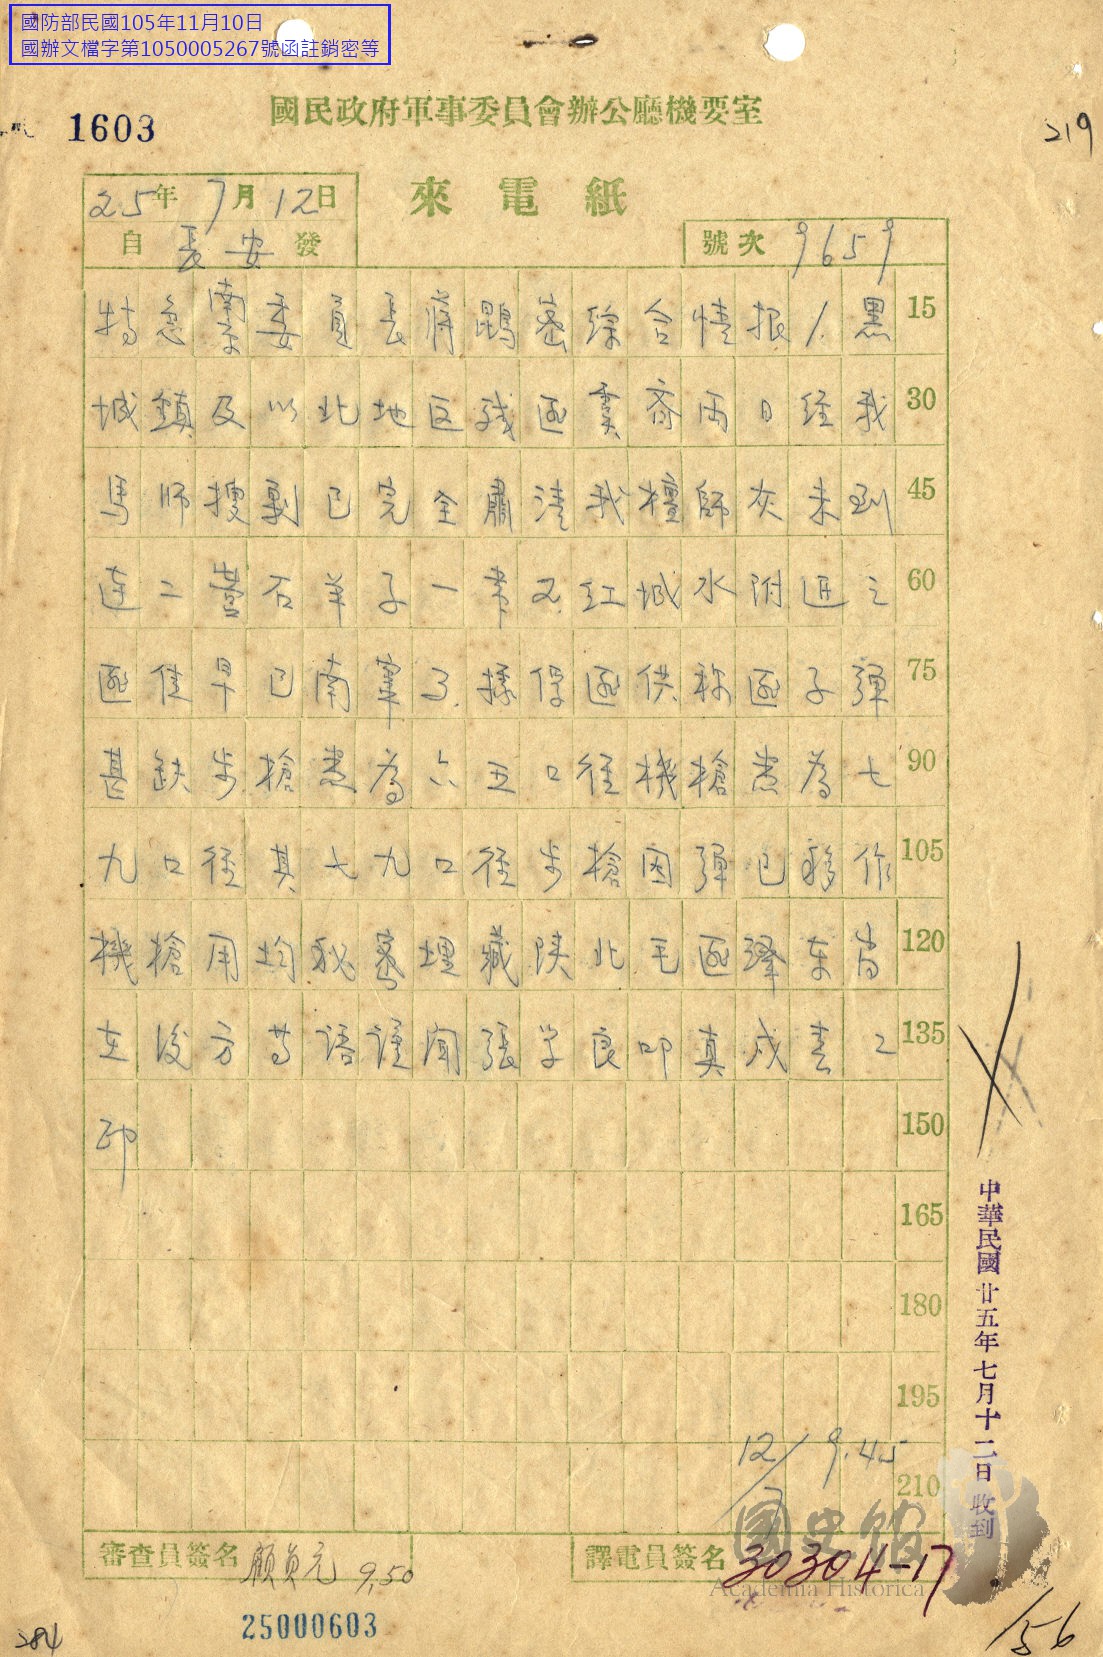 國防部民國105年11月10日
國辦文檔字第1050005267號函註銷密等
1603
國民政府軍事委員會辦公廳機要室
219
來電紙
25年7月12日
自長安發
號次9659
特急南京委員長蔣鵾密綜合情报1.黑 15
城鎮及以北地区残匪虞齊両日経我 30
馬师搜剿已完全肅清我檀師灰未到 45
達二营石羊子一带2.红城水附近之 60
匪佳早已南竄3.據俘匪供称匪子弹 75
甚缺步槍悉為六五口径機槍悉為七 90
九口径其七九口径步槍因弹已移作 105
機槍用均秘密埋藏陕北毛匪澤东尚 120
在後方等语謹闻張学良叩真戌孝二 135
印 150
165
180
195
210
12/7 9.45
中華民國廿五年七月十二日收到
審查員簽名 顧貞元 9.50
譯電員簽名
30304-17
國史館
Academia Historica
25000603
284
156